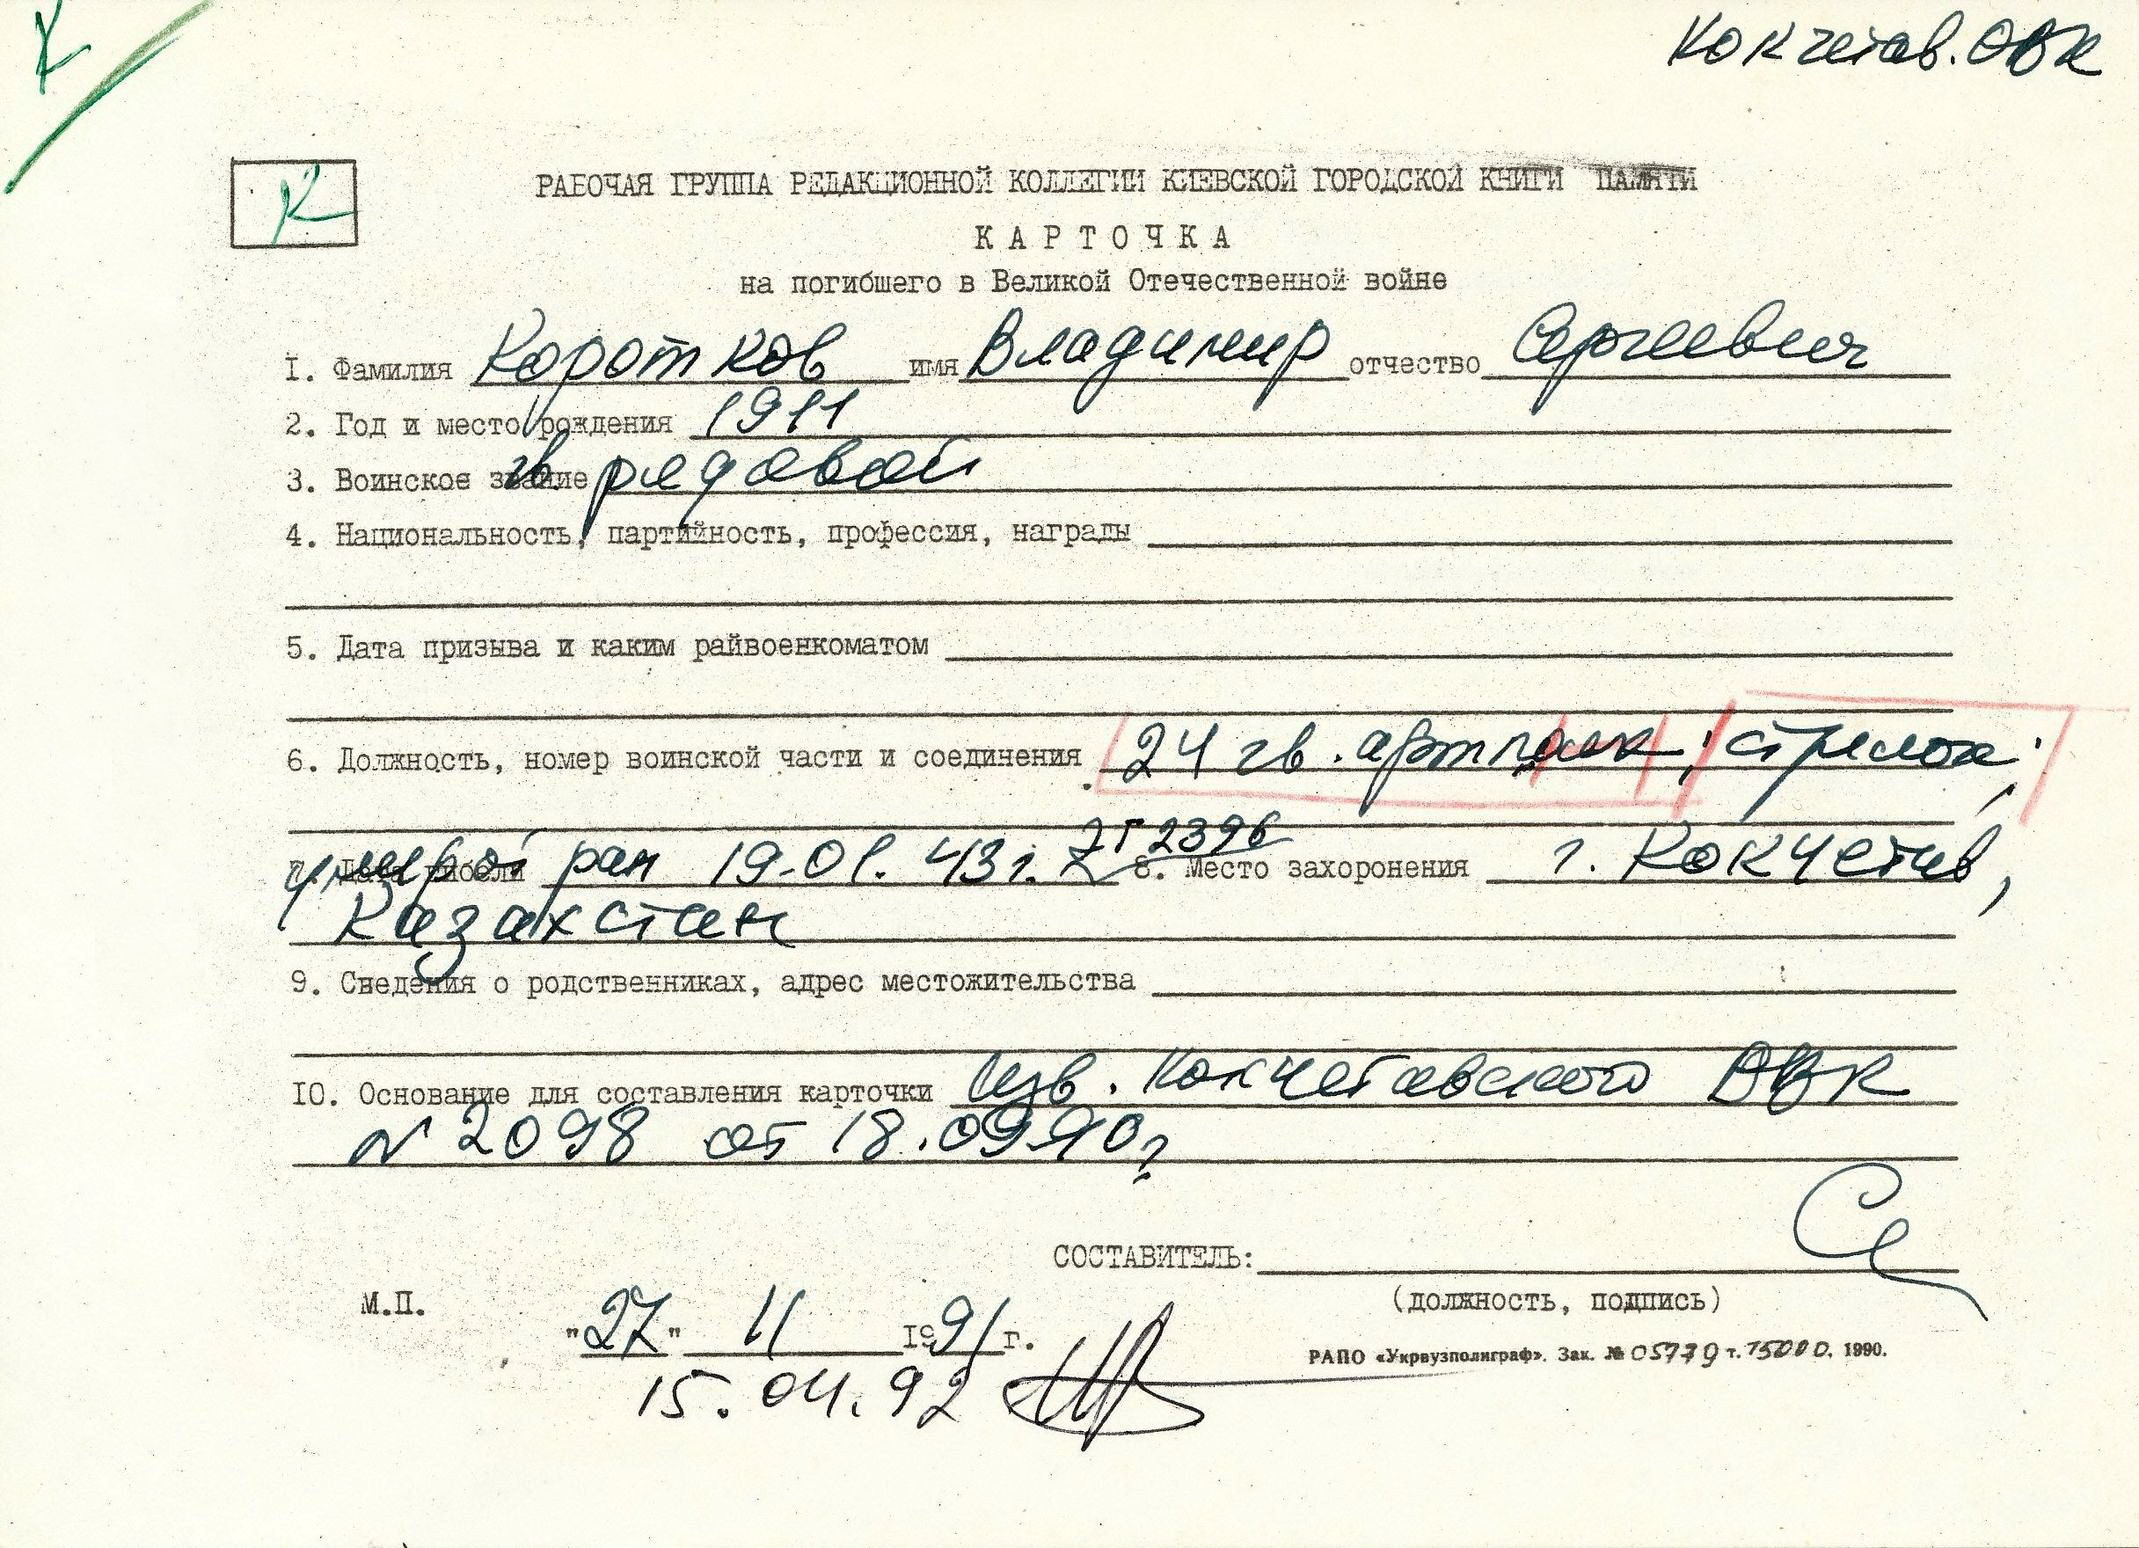 К
Кокчетав. ОВК
К
РАБОЧАЯ ГРУППА РЕДАКЦИОННОЙ КОЛЛЕГИИ КИЕВСКОЙ ГОРОДСКОЙ КНИГИ ПАМЯТИ
КАРТОЧКА
на погибшего в Великой Отечественной войне
I. Фамилия Коротков имя Владимир отчество Сергеевич
2. Год и место рождения 1911
3. Воинское звание гв. рядовой
4. Национальность, партийность, профессия, награды
5. Дата призыва и каким райвоенкоматом
6. Должность, номер воинской части и соединения 24 гв. артполк; стрелок;
7. Дата гибели умер от ран 19.01.43 г. ЭГ 2396 8. Место захоронения г. Кокчетав,
Казахстан
9. Сведения о родственниках, адрес местожительства
IO. Основание для составления карточки Изв. Кокчетавского ОВК
N 2098 от 18.09.90 г
СОСТАВИТЕЛЬ:
М.П.
(должность, подпись)
"27" 11 1991 г.
РАПО «Укрвузполиграф». Зак. № 05779 т. 15000. 1990.
15.04.92